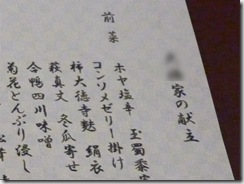 家の献立
前菜
玉蜀黍
ホヤ塩辛
コンソメゼリー掛け
柿大徳寺麩 絹衣
萩真文 冬瓜寄せ
合鴨四川味噌
菊花どんぶり浸し